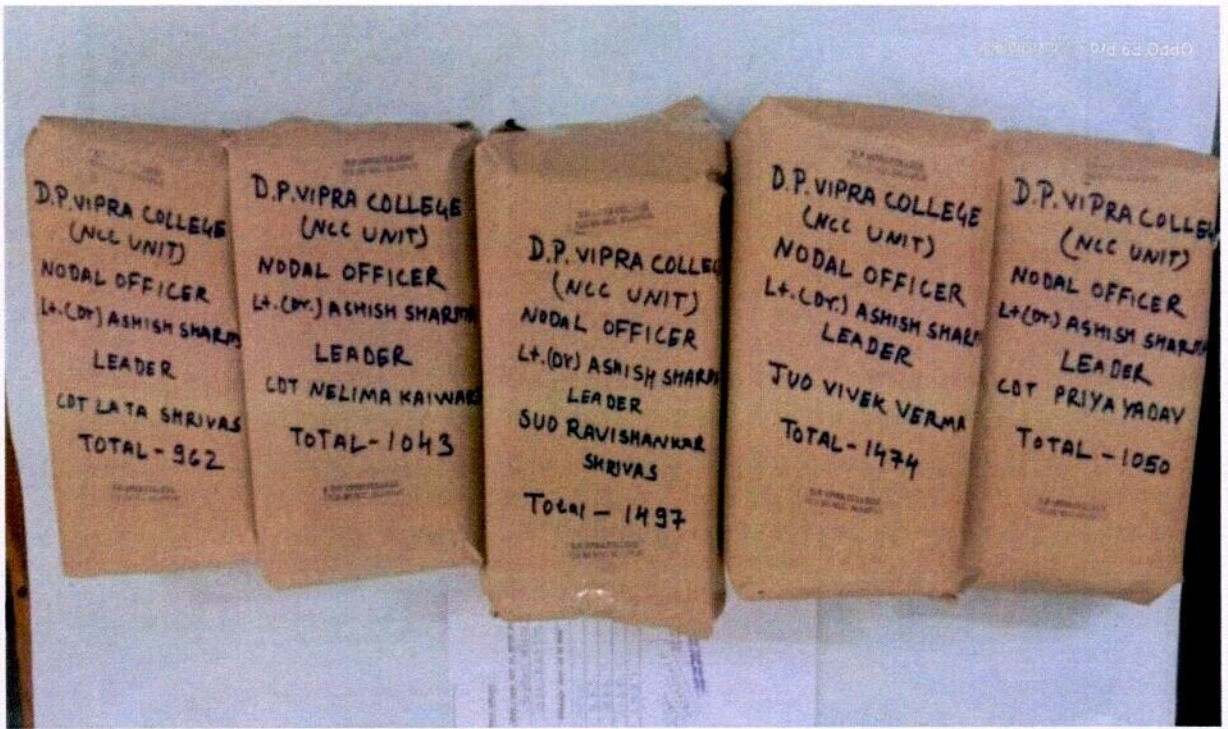 D.P. VIPRA COLLEGE
(NCC UNIT)
NODAL OFFICER
Lt. (Dr) ASHISH SHARMA
LEADER
CDT LATA SHRIVAS
TOTAL - 962
D.P. VIPRA COLLEGE
(NCC UNIT)
NODAL OFFICER
Lt. (Dr.) ASHISH SHARMA
LEADER
CDT NELIMA KAIWAR
TOTAL - 1043
D.P. VIPRA COLLEG
(NCC UNIT)
NODAL OFFICER
Lt. (Dr) ASHISH SHARMA
LEADER
SUO RAVISHANKAR
SHRIVAS
Total - 1497
D.P. VIPRA COLLEGE
(NCC UNIT)
NODAL OFFICER
Lt. (Dr.) ASHISH SHARM
LEADER
JUO VIVEK VERMA
TOTAL - 1474
D.P. VIPRA COLLEGE
(NCC UNIT)
NODAL OFFICER
Lt (Dr) ASHISH SHARMA
LEADER
CDT PRIYA YADAV
TOTAL - 1050